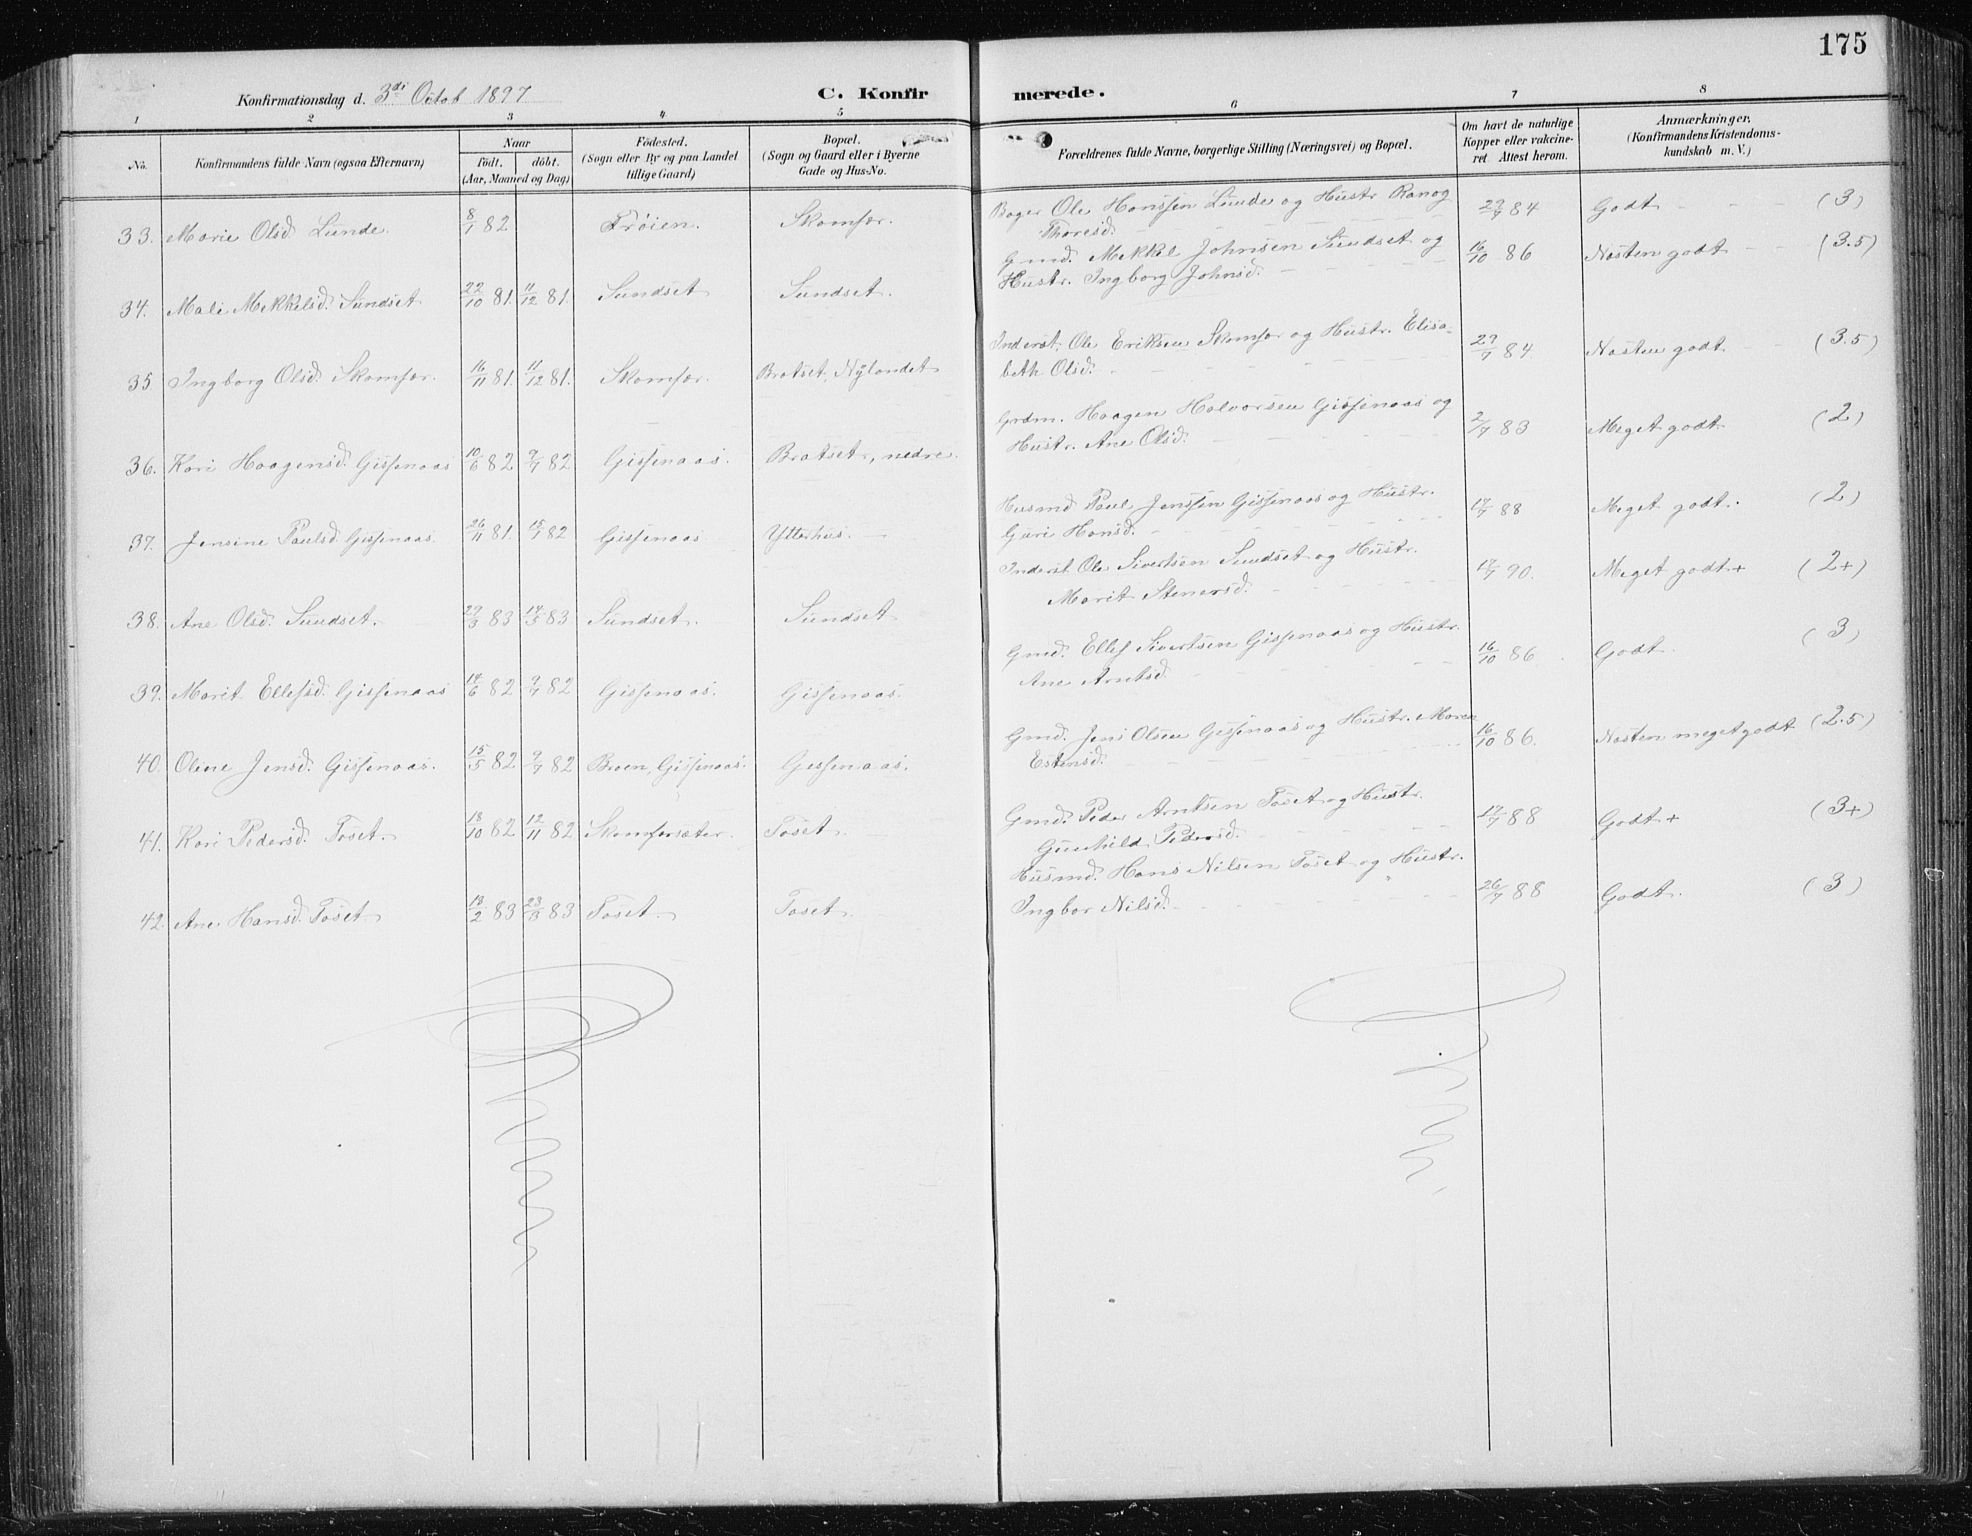 175
Konfirmationsdag d. 3di Octob 1897
C. Konfirmerede.
1 2 3 4 5 6 7 8
No.
Konfirmandens fulde Navn (ogsaa Efternavn)
Naar
födt. döbt.
(Aar, Maaned og Dag)
Födested.
(Sogn eller By og paa Landet
tillige Gaard)
Bopæl.
(Sogn og Gaard eller i Byerne
Gade og Hus-No.
Forældrenes fulde Navne, borgerlige Stilling (Næringsvei) og Bopæl.
Om havt de naturlige
Kopper eller vakcine-
ret Attest herom.
Anmærkninger.
(Konfirmandens Kristendoms-
kundskab m. V.)
33. Marie Olsd. Lunde. 8/7 82 Trøien. Skomfær.
Bager Ole Hanssen Lunde og Hustr Ranog
Thoresd. 84 Godt (3)
34. Mali Mekkelsd. Sundset 22/10 81. 11/12 81. Sundset Sundset.
Gmd. Mekkel Johnsen Sundset og
Hustr. Ingborg Johnsd. 16/10 86 Næsten godt (3.5)
35 Ingborg Olsd. Skomfær. 16/11 81. 11/12 81. Skomfær. Bratset, Nylandet
Inderst. Ole Eriksen Skomfær og Hustr. Elisa-
beth Olsd. 84 Næsten godt (3.5)
36. Kari Haagensd. Gissenaas 10/6 82 9/7 82 Gissenaas. Bratset, nedre.
Grdm. Haagen Halvorsen Gissenaas og
Hustr. Ane Olsd. 2/7 83 Meget godt (2)
37. Jensine Paulsd. Gissenaas. 26/11 81. 15/1 82 Gissenaas Ytterhus.
Husmd Paul Jenssen Gissenaas og Hustr.
Guri Hansd. 17/7 88 Meget godt. (2)
38. Ane Olsd. Sundset. 83 83 Sundset. Sundset
Inderst Ole Sivertsen Sundset og Hustr.
Marit Stenersd. 17/7 90. Meget godt + (2+)
39. Marit Ellefsd. Gissenaas 14/6 82 9/7 82 Gissenaas. Gissenaas.
Gmd. Ellef Sivertsen Gissenaas og Hustr.
Ane Arntsd. 16/10 86 Godt. (3)
40. Oline Jensd. Gissenaas. 15/5 82 9/7 82 Broen, Gissenaas. Gissenaas.
Gmd. Jens Olsen Gissenaas og Hustr. Maren
Estensd. 16/10 86. Næsten meget godt (2.5)
41. Kari Pedersd. Toset. 18/10 82 12/11 82 Skomfærsæter. Toset.
Gmd. Peder Arntsen Toset og Hustr.
Gunhild Pedersd. 17/7 88 Godt + (3+)
42. Ane Hansd. Toset 83 83 Toset. Toset.
Husmd. Hans Nilsen Toset og Hustr.
Ingbor Nilsd. 26/7 88 Godt. (3)